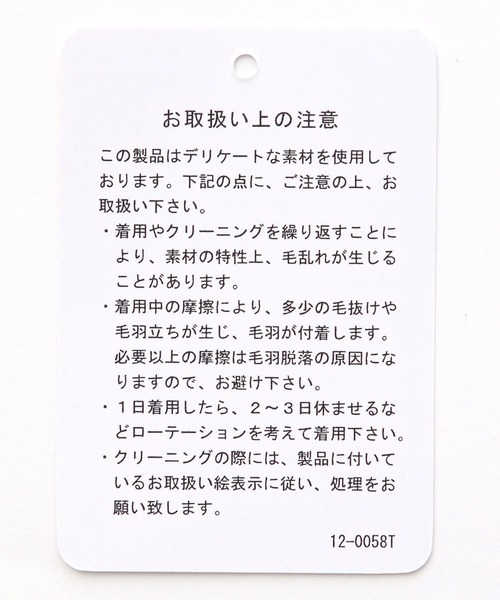 お取扱い上の注意
この製品はデリケートな素材を使用して
おります。下記の点に、ご注意の上、お
取扱い下さい。
・着用やクリーニングを繰り返すことに
より、素材の特性上、毛乱れが生じる
ことがあります。
・着用中の摩擦により、多少の毛抜けや
毛羽立ちが生じ、毛羽が付着します。
必要以上の摩擦は毛羽脱落の原因にな
りますので、お避け下さい。
・１日着用したら、２～３日休ませるな
どローテーションを考えて着用下さい。
・クリーニングの際には、製品に付いて
いるお取扱い絵表示に従い、処理をお
願い致します。
12-0058T